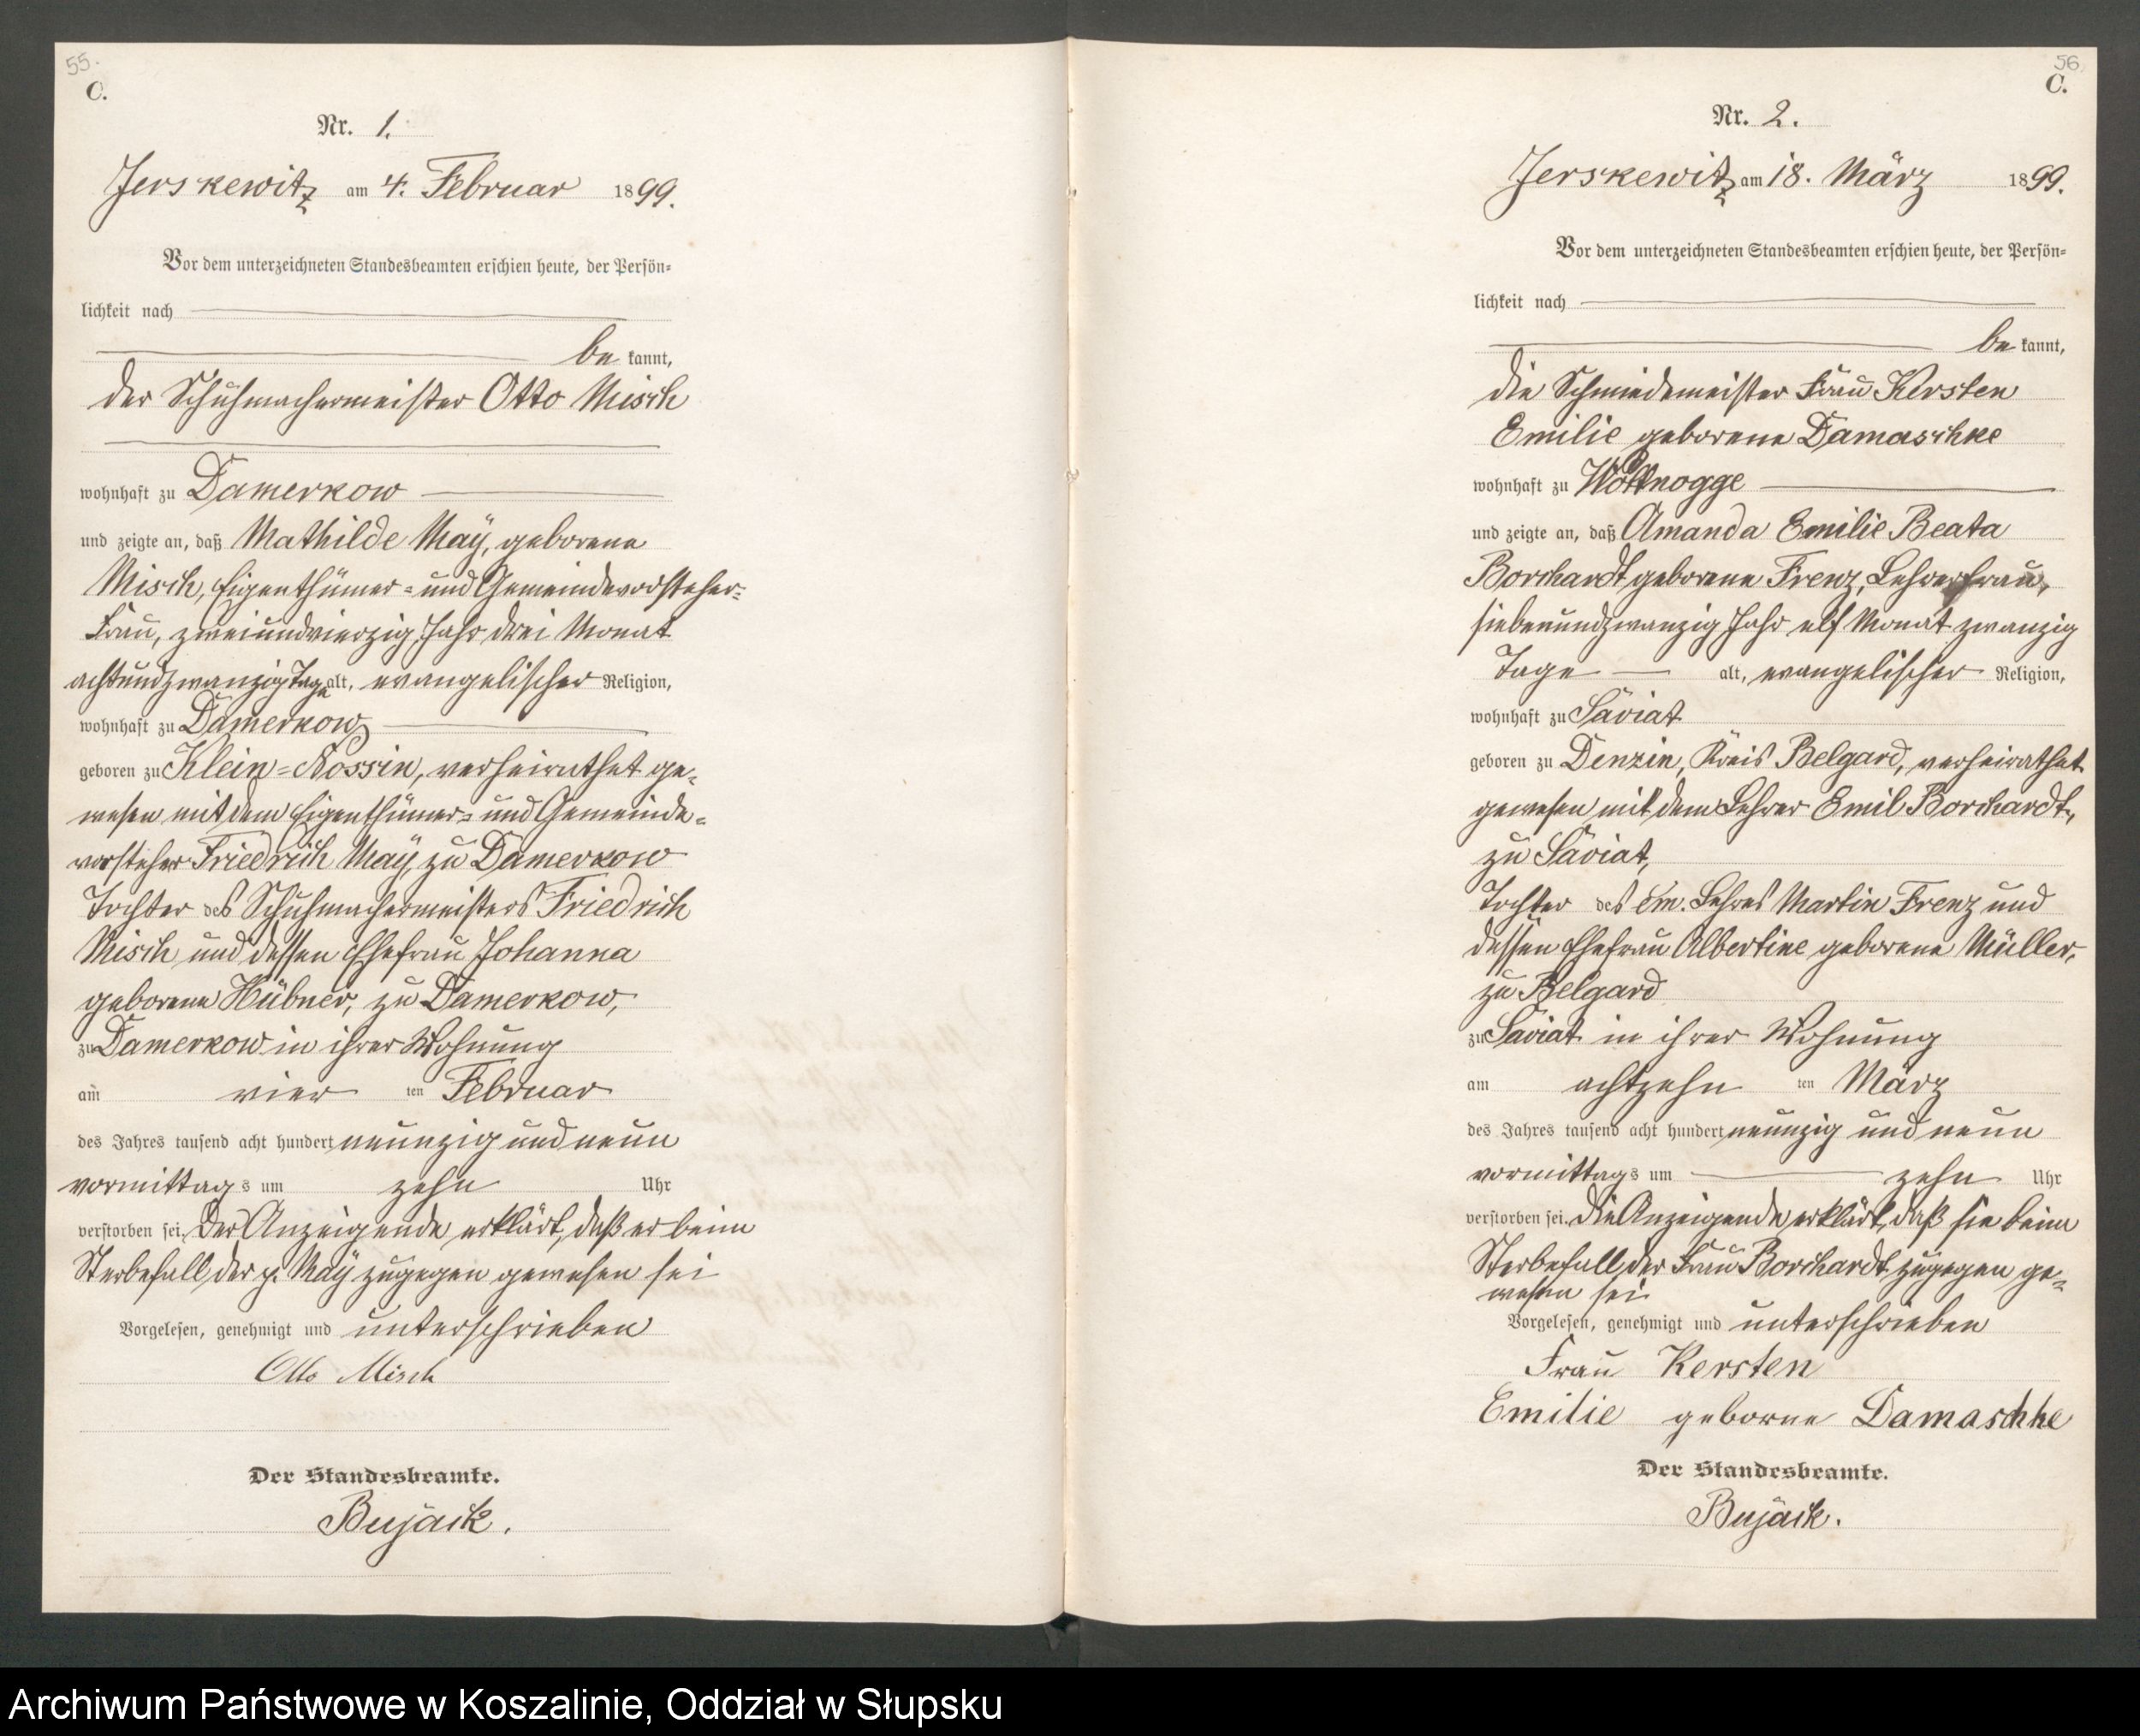 55.
C.
Nr. 1.
Jerskewitz am 4. Februar 1899.
Vor dem unterzeichneten Standesbeamten erschien heute, der Persön-
lichkeit nach
be kannt,
der Schuhmachermeister Otto Misch
wohnhaft zu Damerkow
und zeigte an, daß Mathilde Maÿ, geborene
Misch, Eigenthümer- und Gemeindevorsteher-
Frau, zweiundvierzig Jahr drei Monat
achtundzwanzig Tage alt, evangelischer Religion,
wohnhaft zu Damerkow
geboren zu Klein-Nossin, verheirathet ge-
wesen mit dem Eigenthümer- und Gemeinde-
vorsteher Friedrich Maÿ, zu Damerkow
Tochter des Schuhmachermeisters Friedrich
Misch und dessen Ehefrau Johanna
geborene Hübner, zu Damerkow,
zu Damerkow in ihrer Wohnung
am vier ten Februar
des Jahres tausend acht hundert neunzig und neun
vormittag s um zehn Uhr
verstorben sei. Der Anzeigende erklärt, daß er beim
Sterbefall der p. Maÿ zugegen gewesen sei
Vorgelesen, genehmigt und unterschrieben
Otto Misch
Der Standesbeamte.
Bujack.
56
C.
Nr. 2.
Jerskewitz am 18. März 1899.
Vor dem unterzeichneten Standesbeamten erschien heute, der Persön-
lichkeit nach
be kannt,
die Schmiedemeister Frau Kersten
Emilie geborene Damaschke
wohnhaft zu Wottnogge
und zeigte an, daß Amanda Emilie Beata
Borchardt geborene Frenz, Lehrerfrau,
siebenundzwanzig Jahr elf Monat zwanzig
Tage alt, evangelischer Religion,
wohnhaft zu Saviat
geboren zu Denzin, Kreis Belgard, verheirathet
gewesen mit dem Lehrer Emil Borchardt,
zu Saviat,
Tochter des em. Lehres Martin Frenz und
dessen Ehefrau Albertine geborene Müller,
zu Belgard
zu Saviat in ihrer Wohnung
am achtzehn ten März
des Jahres tausend acht hundert neunzig und neun
vormittag s um zehn Uhr
verstorben sei. Die Anzeigende erklärt, daß sie beim
Sterbefall der Frau Borchardt zugegen ge-
wesen sei
Vorgelesen, genehmigt und unterschrieben
Frau Kersten
Emilie geborne Damaschke
Der Standesbeamte.
Bujack.
Archiwum Państwowe w Koszalinie, Oddział w Słupsku